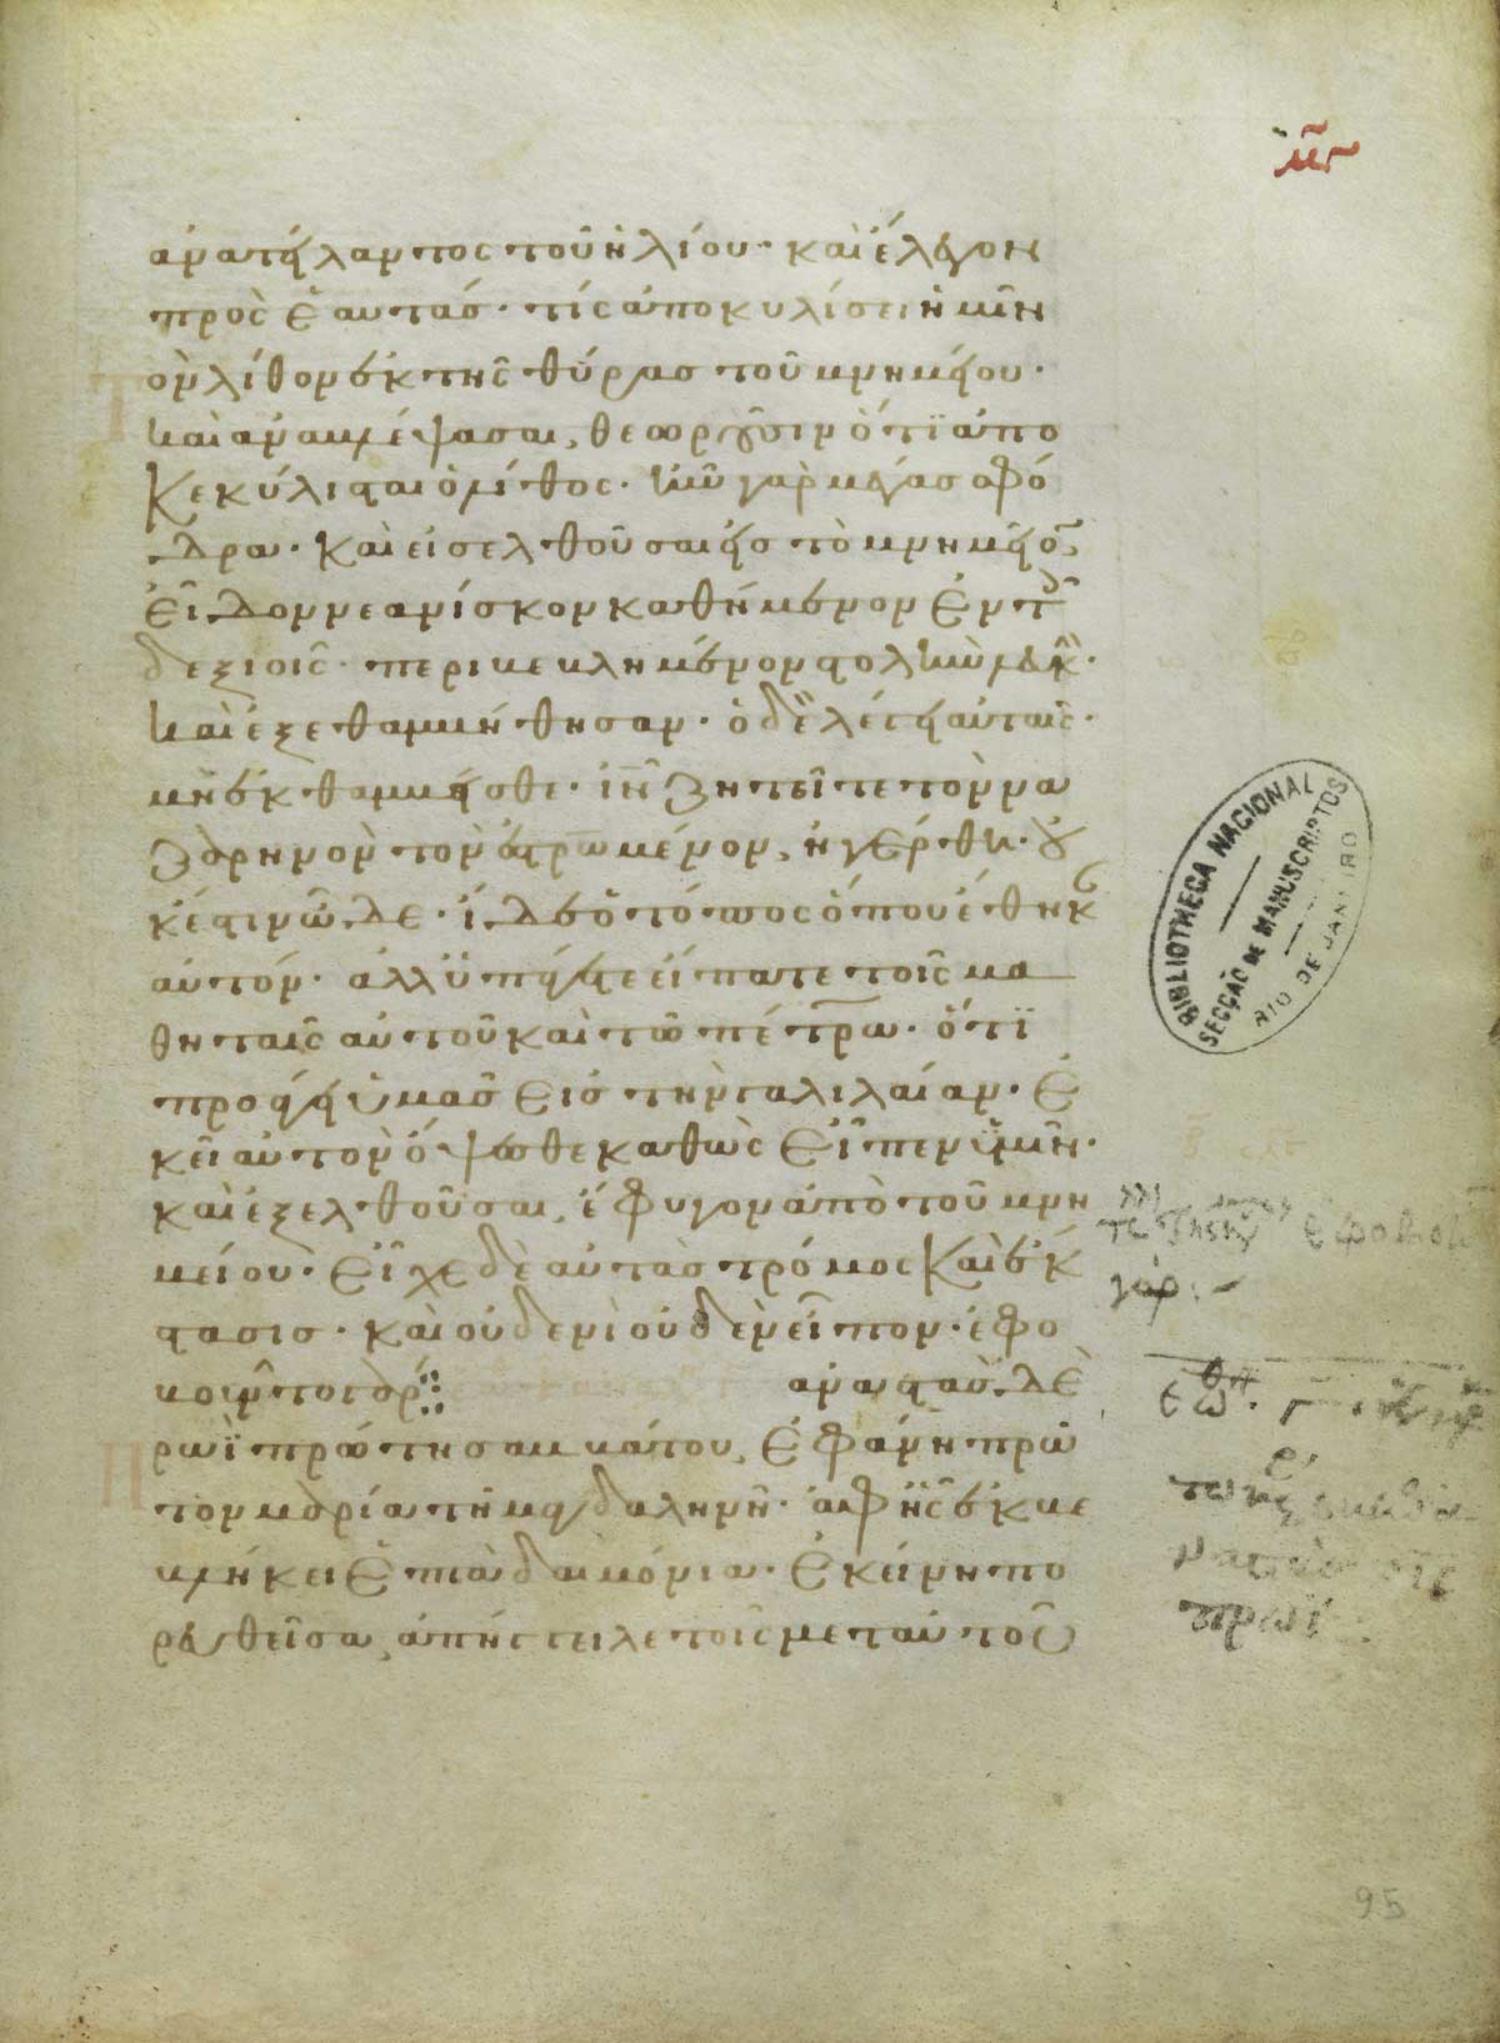 ἀνατείλαντος τοῦ ἡλίου· καὶ ἔλεγον
πρὸς ἑαυτάς· τίς ἀποκυλίσει ἡμῖν
ὸν λίθον ἐκ τῆς θύρας τοῦ μνημείου·
καὶ ἀναβλέψασαι, θεωροῦσιν ὅτϊ ἀπο
κεκύλισται ὁ λίθος· ἦν γὰρ μέγας σφό
δρα· καὶ εἰσελθοῦσαι εἰς τὸ μνημεῖον,
εἶδον νεανίσκον καθήμενον ἐν τοῖς
δεξιοῖς· περιβεβλημένον στολὴν λευκήν·
καὶ ἐξεθαμβήθησαν· ὁ δὲ λέγει αὐταῖς·
μὴ ἐκθαμβεῖσθε· ἰν ζητεῖτε τὸν να
ζαρηνὸν τὸν ἐστρωμένον, ἠγέρθη· οὐ
κ ἔστιν ὧδε· ἴδε ὁ τόπος ὅπου ἔθηκαν
αὐτόν· ἀλλ ὑπάγετε εἴπατε τοῖς μα
θηταῖς αὐτοῦ καὶ τῶ πέτρω· ὅτϊ
προάγει ὑμᾶς εἰς τὴν γαλιλαίαν· ἐ
κεῖ αὐτὸν ὄψεσθε καθὼς εἶπεν ὑμῖν·
καὶ ἐξελθοῦσαι, ἔφυγον ἀπὸ τοῦ μνη
μείου· εἶχε δὲ αὐτὰς τρόμος καὶ ἔκ
στασις· καὶ οὐδενὶ οὐδὲν εἶπον· ἐφο
βοῦντο γάρ:
ἀναστὰς δὲ
ρωῒ πρώτη σαββάτου, ἐφάνη πρῶ
τον μαρία τῆ μαγδαληνῆ· ἀφ ἧς ἐκβε
βλήκει ἑπτὰ δαιμόνια· ἐκείνη πο
ρευθεῖσα, ἀπήγγειλε τοῖς μετ αὐτοῦ
ἐφοβου
γάρ:
πρωΐ
BIBLIOTHECA NACIONAL
SECÇÃO DE MANUSCRIPTOS
RIO DE JANEIRO
95